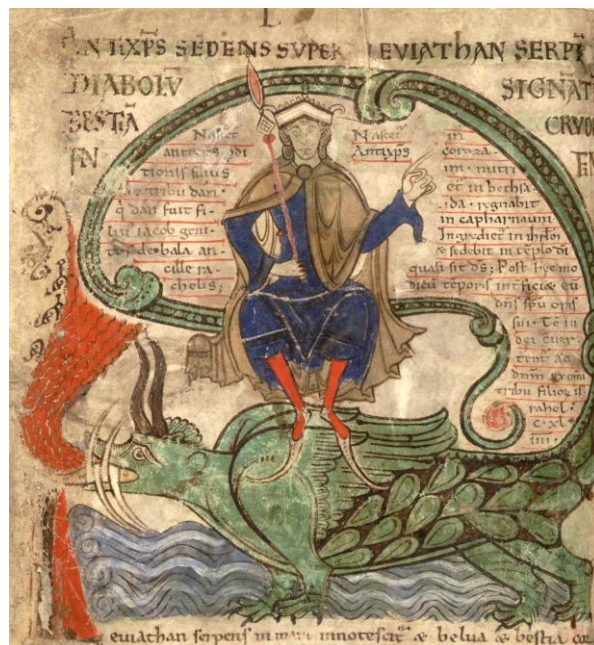 L
ANTIXP̄S SEDENS SUPER LEVIATHAN SERPĒ
DIABOLV̄ SIGNAT̄
BESTIĀ
IN
Nascet̄
antixp̄s p̄di
tionis filius
de tribu dan·
q̄ dan fuit fi-
lius iacob geni-
de bala an-
cille ra-
chelis;
Nascet̄ in
Antixp̄s coroza-
im· nutri
et̄ in bethsa-
ida· regnabit
in capharnaum·
Ingrediet̄ in
& sedebit in tēplo di
quasi sit ds̄; Post hec mo
dicū tēporis eū
dn̄s sp̄u oris
sui· Tē iu
dei
tent̄ ad
dn̄m ex om̄i
tribu filior̄ is
rahel·
c·xl
iiii·
euiathan serpens in mari innotescit̄ & belua & bestia